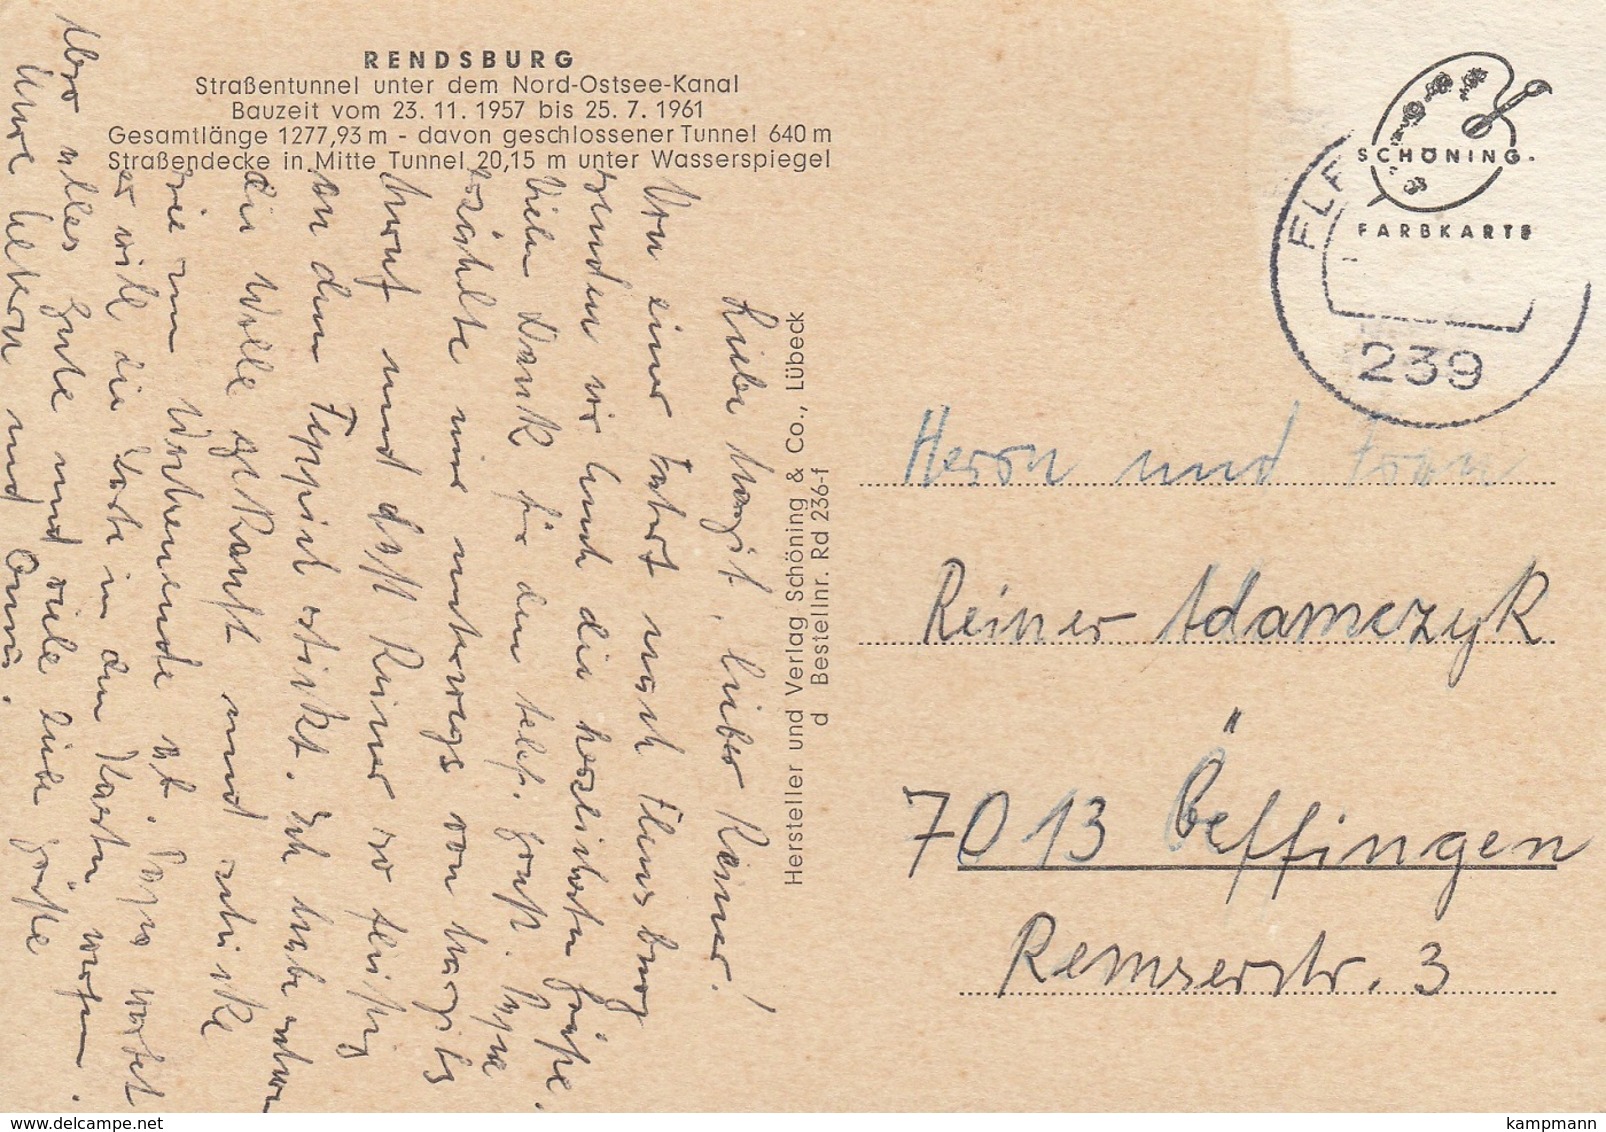 RENDSBURG
Straßentunnel unter dem Nord-Ostsee-Kanal
Bauzeit vom 23. 11. 1957 bis 25. 7. 1961
Gesamtlänge 1277,93 m - davon geschlossener Tunnel 640 m
Straßendecke in Mitte Tunnel 20,15 m unter Wasserspiegel
SCHÖNING.
FARBKARTE
FLE
239
Liebe Margit, lieber Reiner!
Von einer Fahrt nach Flensburg
senden wir Euch die herzlichsten Grüße.
Vielen Dank für den telef. Gruß. Papa
erzählte mir unterwegs von Margits
Anruf und daß Reiner so fleißig
an dem Teppich stickt. Ich habe schon
die Wolle gekauft und schicke
sie am Wochenende ab. Papa wartet
er will die Karte in den Kasten werfen.
Also alles Gute und viele liebe Grüße
Eure Eltern und Omi.
Hersteller und Verlag Schöning & Co., Lübeck
d Bestellnr. Rd 236-f
Herrn und Frau
Reiner Adamczyk
7013 Oeffingen
Remserstr. 3
kampmann